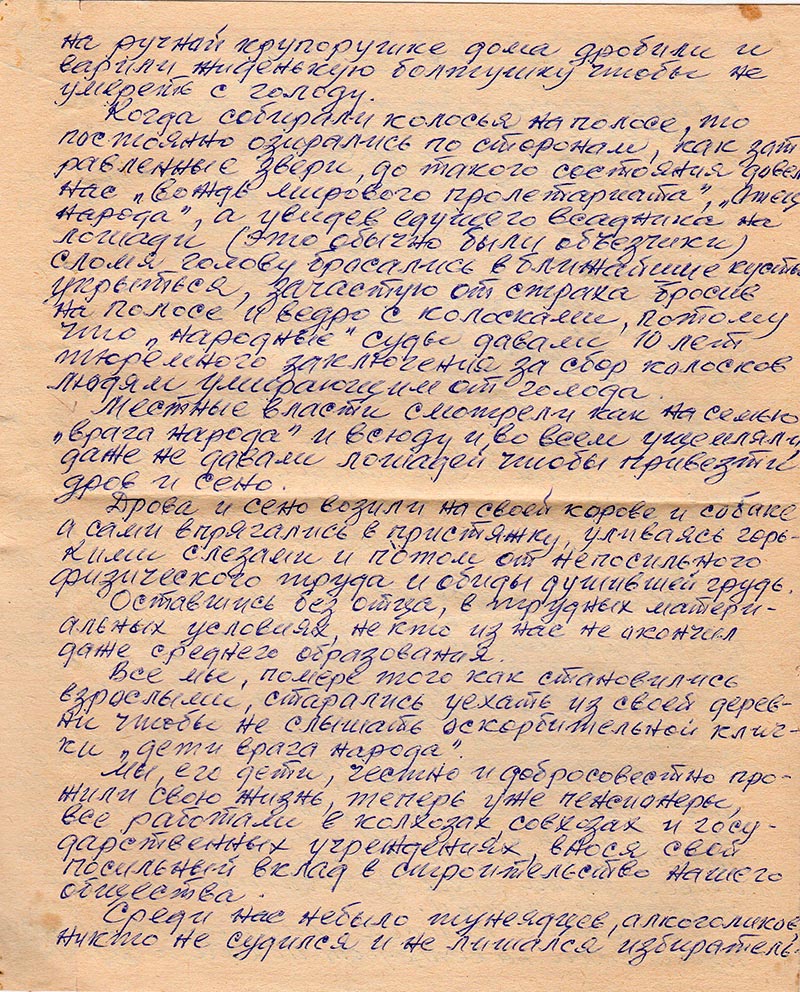 на ручной крупорушке дома дробили и
варили жиденькую болтушку чтобы не
умереть с голоду.
Когда собирали колосья на полосе, то
постоянно озирались по сторонам, как зат
равленные звери, до такого состояния довел
нас „вождь мирового пролетариата", „Отец
народа", а увидев едущего всадника на
лошади (это обычно были объезчики)
сломя голову бросались в ближайшие кусты
укрыться, зачастую от страха бросив
на полосе и ведро с колосками, потому
что „народные" суды давали 10 лет
тюремного заключения за сбор колосков
людям умирающим от голода.
Местные власти смотрели как на семью
„врага народа" и всюду и во всем ущемляли
даже не давали лошадей чтобы привезти
дров и сено.
Дрова и сено возили на своей корове и
а сами впрягались в пристяжку, уливаясь горь-
кими слезами и потом от непосильного
физического труда и обиды душившей грудь.
Оставшись без отца, в трудных матери-
альных условиях, не кто из нас не окончил
даже среднего образования.
Все мы, помере того как становились
взрослыми, старались уехать из своей дерев-
ни чтобы не слышать оскорбительной клич-
ки „дети врага народа".
Мы, его дети, честно и добросовестно про-
жили свою жизнь, теперь уже пенсионеры,
все работали в колхозах совхозах и госу-
дарственных учреждениях, внося свой
посильный вклад в строительство нашего
общества.
Среди нас небыло тунеядцев, алкоголиков,
никто не судился и не лишался избиратель-